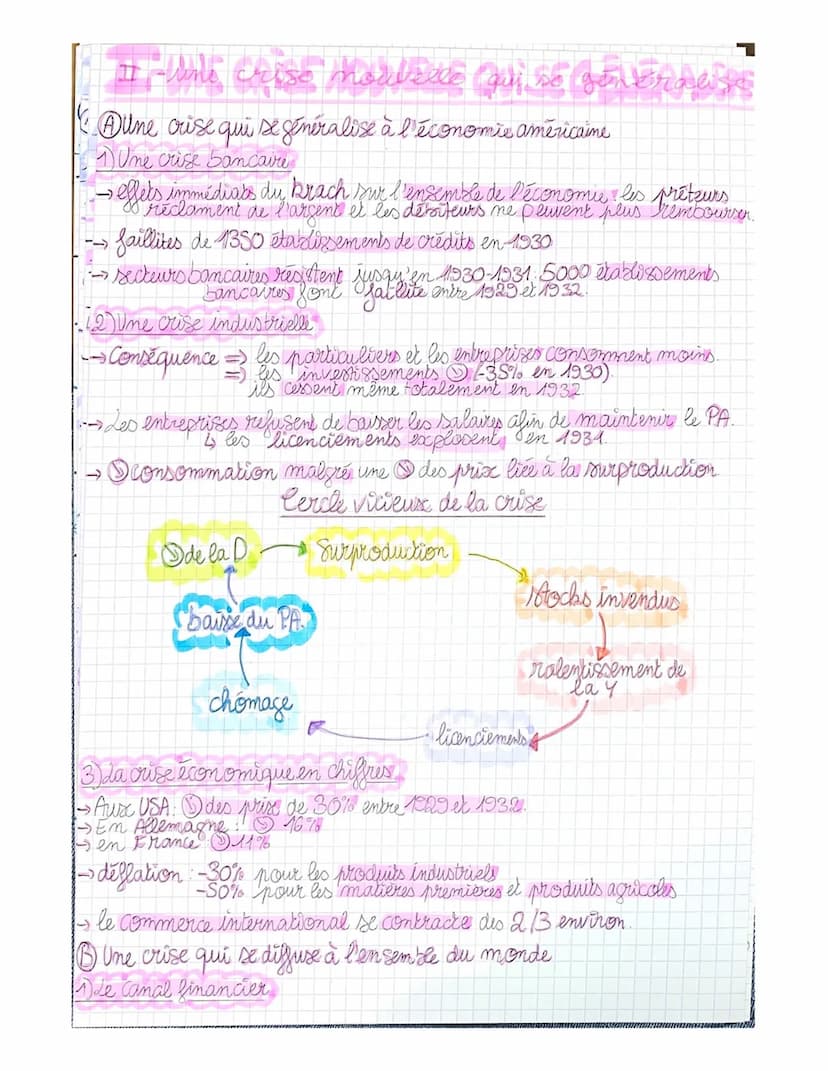 II.-Une crise nouvelle qui se généralise
A Une crise qui se généralise à l'économie américaine
1) Une crise bancaire
→ effets immédiats du krach sur l'ensemble de l'économie : les prêteurs
réclament de l'argent et les débiteurs ne peuvent plus rembourser.
→ faillites de 1350 établissements de crédits en 1930
→ secteurs bancaires résistent jusqu'en 1930-1931: 5000 établissements
bancaires font faillite entre 1929 et 1932.
2) Une crise industrielle
→ Conséquence => les particuliers et les entreprises consomment moins.
=> les investissements ↘ (-35% en 1930)
ils cessent même totalement en 1932.
→ Les entreprises refusent de baisser les salaires afin de maintenir le PA.
↳ les licenciements explosent, en 1931.
→ ↘ consommation malgré une ↘ des prix liée à la surproduction
Cercle vicieux de la crise
↘ de la D → Surproduction
stocks invendus
baisse du PA.
ralentissement de
la Y
chômage
licenciements
3) La crise économique en chiffres
→ Aux USA: ↘ des prix de 30% entre 1929 et 1932.
→ En Allemagne : ↘ 16%
→ en France ↘ 11%
→ déflation : -30% pour les produits industriels
-50% pour les matières premières et produits agricoles
→ le commerce international se contracte des 2/3 environ.
B Une crise qui se diffuse à l'ensemble du monde
1) Le canal financier